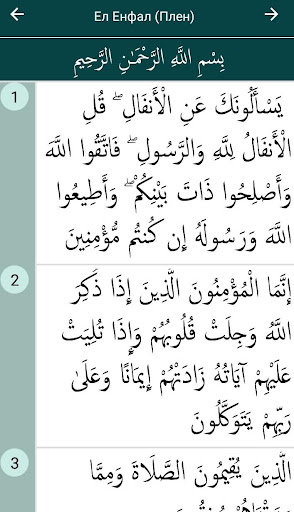 Ел Енфал (Плен)
بِسْمِ اللَّهِ الرَّحْمَٰنِ الرَّحِيمِ
1
يَسْأَلُونَكَ عَنِ الْأَنْفَالِ ۖ قُلِ
الْأَنْفَالُ لِلَّهِ وَالرَّسُولِ ۖ فَاتَّقُوا اللَّهَ
وَأَصْلِحُوا ذَاتَ بَيْنِكُمْ ۖ وَأَطِيعُوا
اللَّهَ وَرَسُولَهُ إِن كُنتُم مُّؤْمِنِينَ
2
إِنَّمَا الْمُؤْمِنُونَ الَّذِينَ إِذَا ذُكِرَ
اللَّهُ وَجِلَتْ قُلُوبُهُمْ وَإِذَا تُلِيَتْ
عَلَيْهِمْ آيَاتُهُ زَادَتْهُمْ إِيمَانًا وَعَلَىٰ
رَبِّهِمْ يَتَوَكَّلُونَ
3
الَّذِينَ يُقِيمُونَ الصَّلَاةَ وَمِمَّا